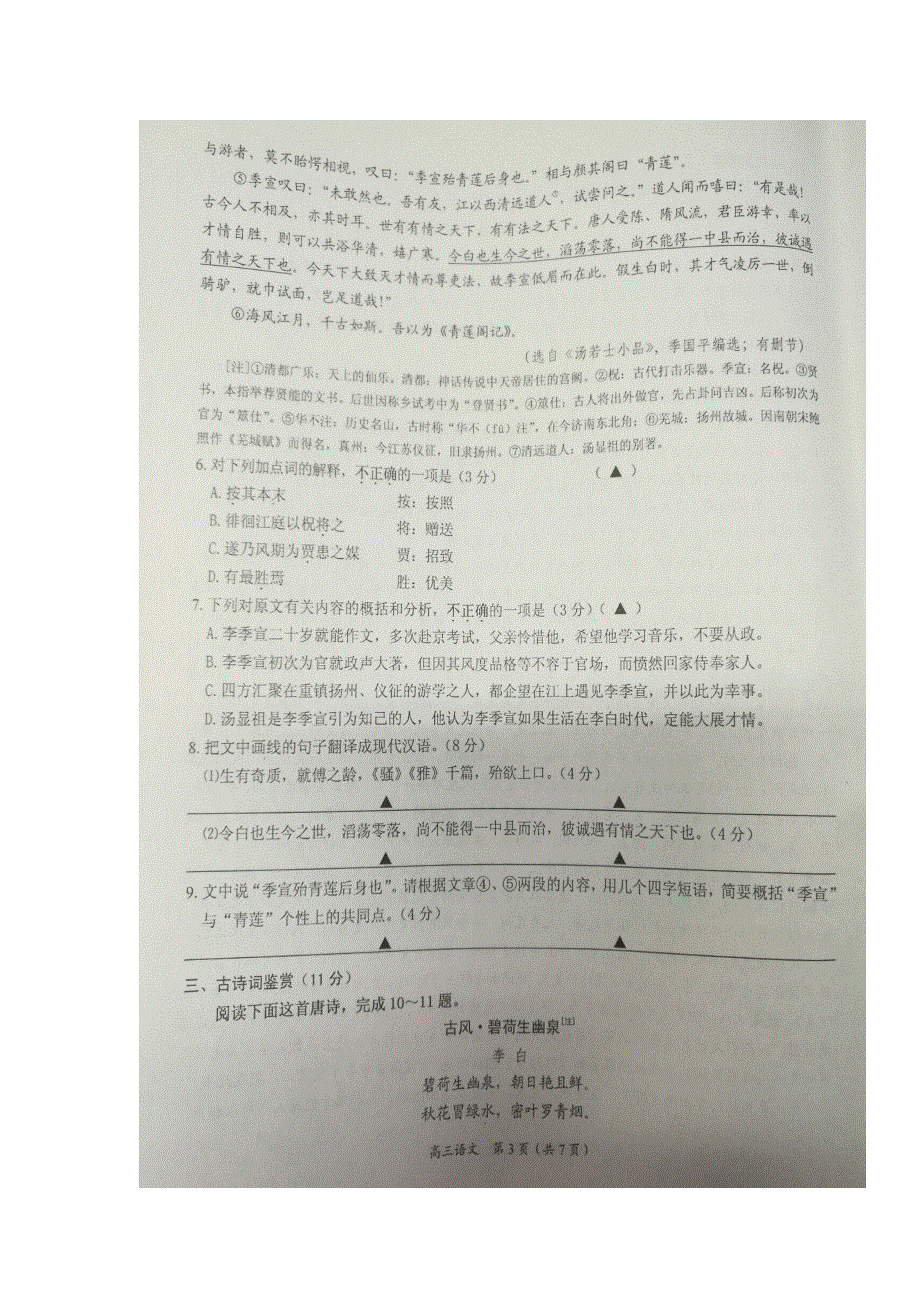 与游者，莫不眙愕相视，叹曰：“季宣殆青莲后身也。”相与颜其阁曰“青莲”。
⑤季宣叹曰：“未敢然也。吾有友，江以西清远道人⑦，试尝问之。”道人闻而嘻曰：“有是哉！
古今人不相及，亦其时耳。世有有情之天下，有有法之天下。唐人受陈、隋风流，君臣游幸，率以
才情自胜，则可以共浴华清，嬉广寒。令白也生今之世，滔荡零落，尚不能得一中县而治，彼诚遇
有情之天下也。今天下大致灭才情而尊吏法，故季宣低眉而在此。假生白时，其才气凌厉一世，倒
骑驴，就巾试面，岂足道哉！”
⑥海风江月，千古如斯。吾以为《青莲阁记》。
（选自《汤若士小品》，季国平编选；有删节）
[注]①清都广乐：天上的仙乐。清都：神话传说中天帝居住的宫阙。②柷：古代打击乐器。季宣：名柷。③贤
书，本指举荐贤能的文书。后世因称乡试考中为“登贤书”。④筮仕：古人将出外做官，先占卦问吉凶。后称初次为
官为“筮仕”。⑤华不注：历史名山，古时称“华不（fū）注”，在今济南东北角；⑥芜城：扬州故城。因南朝宋鲍
照作《芜城赋》而得名，真州：今江苏仪征，旧隶扬州。⑦清远道人：汤显祖的别署。
6. 对下列加点词的解释，不正确的一项是（3分） （ ▲ ）
A. 按其本末 按：按照
B. 徘徊江庭以柷将之 将：赠送
C. 遂乃风期为贾患之媒 贾：招致
D. 有最胜焉 胜：优美
7. 下列对原文有关内容的概括和分析，不正确的一项是（3分）（ ▲ ）
A. 李季宣二十岁就能作文，多次赴京考试，父亲怜惜他，希望他学习音乐，不要从政。
B. 李季宣初次为官就政声大著，但因其风度品格等不容于官场，而愤然回家侍奉家人。
C. 四方汇聚在重镇扬州、仪征的游学之人，都企望在江上遇见李季宣，并以此为幸事。
D. 汤显祖是李季宣引为知己的人，他认为李季宣如果生活在李白时代，定能大展才情。
8. 把文中画线的句子翻译成现代汉语。（8分）
⑴生有奇质，就傅之龄，《骚》《雅》千篇，殆欲上口。（4分）
▲ ▲
⑵令白也生今之世，滔荡零落，尚不能得一中县而治，彼诚遇有情之天下也。（4分）
▲ ▲
9. 文中说“季宣殆青莲后身也”。请根据文章④、⑤两段的内容，用几个四字短语，简要概括“季宣”
与“青莲”个性上的共同点。（4分）
▲ ▲
三、古诗词鉴赏（11分）
阅读下面这首唐诗，完成10～11题。
古风·碧荷生幽泉[注]
李 白
碧荷生幽泉，朝日艳且鲜。
秋花冒绿水，密叶罗青烟。
高三语文 第3页（共7页）